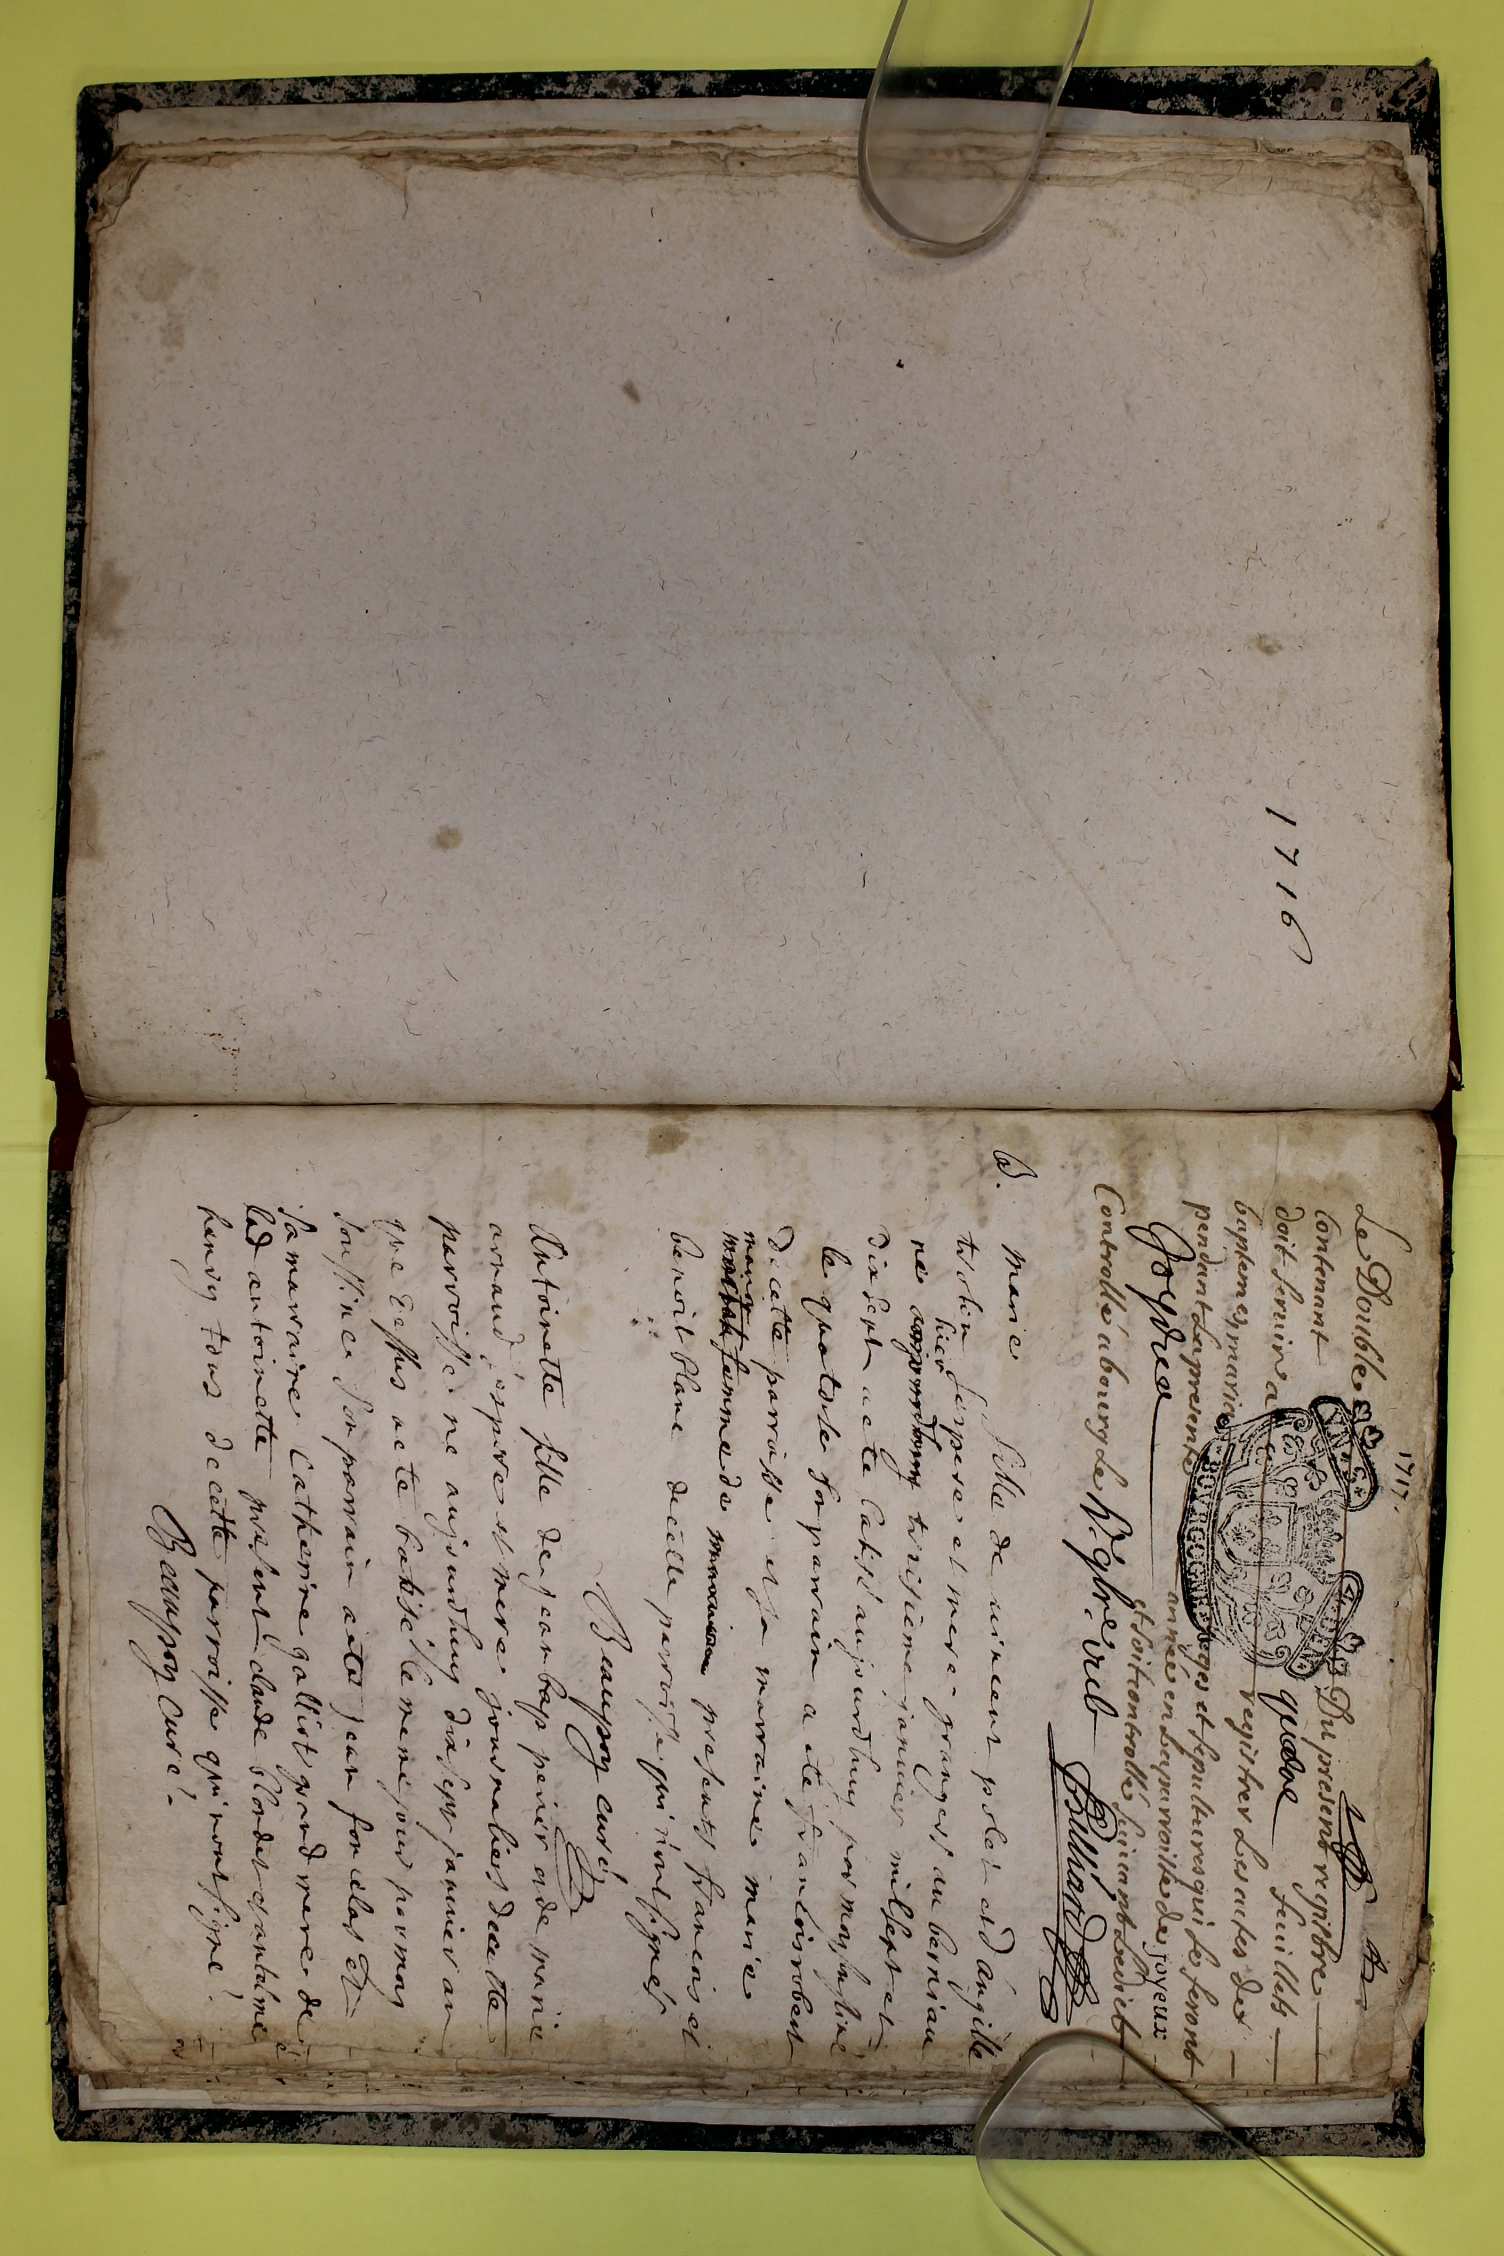 1716
1717.
Le Double Du present registre
Contenant quatre feuillets
doit servir a registrer Les actes des
baptemes mariages et sepultures qui se feront
pendant La presente année en La parroisse de joyeux
et soit controllé suivant Ledict
Controllé a bourg le
B.
marie fille de vincent polet et d'angille
ses pere et mere grangers au
né hier treisieme janvier mil sept et
dix sept a ete batisé aujourdhuy par moy soussiné
le quatorse son parrain a ete francois robert
de cette parroisse et sa marraine marie
femme de presents francois et
benoit blanc de cette parroisse qui n'ont signés
Beaupoy curé
Antoinette fille de jean bap perier et de marie
arnaud, ses pere et mere journaliers de cette
parroisse né aujourdhuy dix sept janvier an
que dessus a ete batisé le meme jour par moy
soussiné son parrain a ete jean
sa marraine Catherine galliot grand mere de
lad antoinette present claude blondet et antoine
tous de cette parroisse qui n'ont signé
Beaupoy Curé